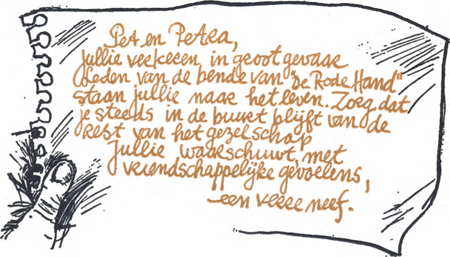 Pet en Petra,
jullie verkeren in groot gevaar
Leden van de bende van "De Rode Hand"
staan jullie naar het leven. Zorg dat
je steeds in de buurt blijft van de
rest van het gezelschap
Jullie waarschuwt, met
vriendschappelijke gevoelens,
een verre neef.